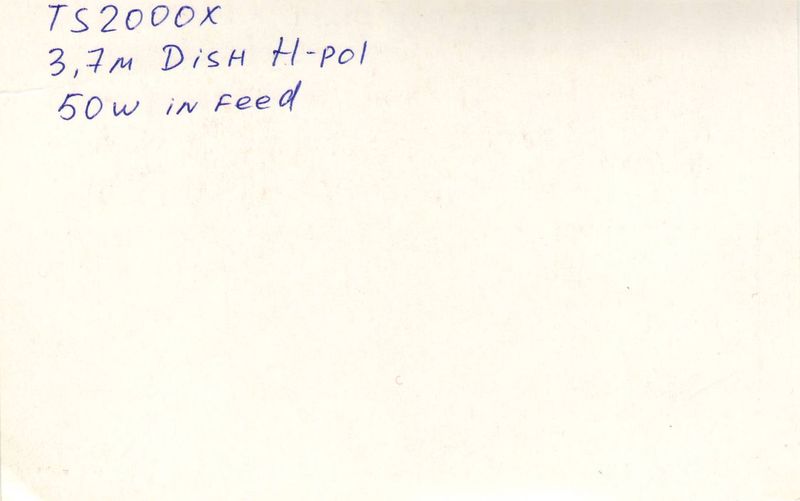 TS2000X
3,7m DisH H-pol
50w in Feed